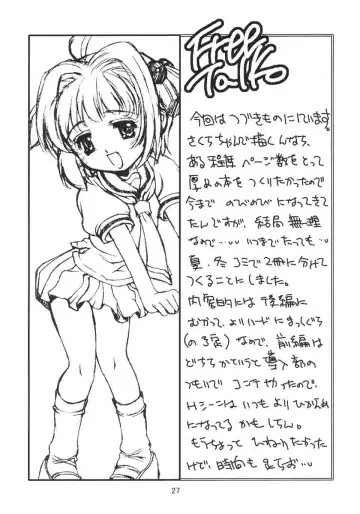 Free Talk
今回はつづきものにしています。
さくらちゃんで描くんなら、
ある程度ページ数をとって
厚みの本をつくりたかったので
今まで のびのびになってきて
たんですが、結局無理
なので…いつまでたっても…
夏・冬コミで2冊に分けて
つくることにしました。
内容的には後編に
むかって、よりハードにまっしぐら
(の予定)なので、前編は
どちらかていうと導入部の
つもりで コンテやったので、
Hシーンはいつもよりひかえめ
になってるかもしらん。
もうちょって ひねりたかった
けど、時間も足らず…
27